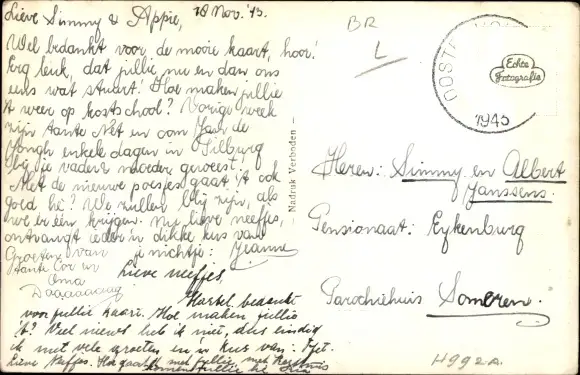 Lieve Simmy & Appie, 18 Nov. '45.
Wel bedankt voor de mooie kaart, hoor!
Erg leuk, dat jullie nu en dan ons
eens wat stuurt. Hoe maken jullie
't weer op kostschool? Vorige week
zijn tante Net en oom Jan de
Jongh enkele dagen in Tilburg
bij je vader & moeder geweest!
Met de nieuwe poesjes gaat 't ook
goed hè? We zullen blij zijn, als
we er één krijgen. Nu lieve neefjes,
ontvangt ieder 'n dikke kus van
je nichtje: Jeanne
Groeten van
tante Cor en
Oma
Daaaaaaaag
Lieve neefjes,
Hartel. bedankt
voor jullie kaart. Hoe maken jullie
't? Veel nieuws heb ik niet, dus eindig
ik met vele groeten en 'n kus van:
Lieve neefjes. Hoe gaat het met jullie
Nadruk Verboden
BR
L
OOST
1945
Echte
Fotografie
Heren: Simmy en Albert
Janssens.
Pensionaat: Eykenburg
Parochiehuis Someren.
H992A.